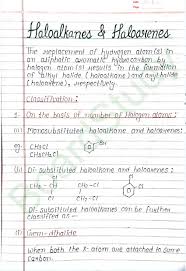 Haloalkanes & Haloarenes
The replacement of hydrogen atom(s) in
an aliphatic aromatic hydrocarbon by
halogen atom(s) results in the formation
of alkyl halide (haloalkane) and aryl halide
(haloarene), respectively.
Classification:
1. On the basis of number of Halogen atoms:
(i) Monosubstituted haloalkane and haloarenes:
eg. CH3Cl
C2H5Cl
Cl
(ii) Di-substituted haloalkane and haloarenes:
Cl
Di-substituted haloalkanes can be further
classified as —
(i) Gem-dihalide
When both the X-atom are attached to same
carbon.